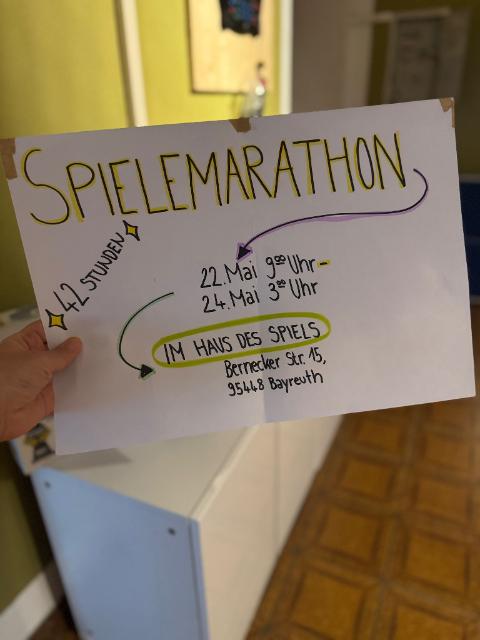 SPIELEMARATHON
42 STUNDEN
22. Mai 9⁰⁰ Uhr –
24. Mai 3⁰⁰ Uhr
IM HAUS DES SPIELS
Bernecker Str. 15,
95448 Bayreuth